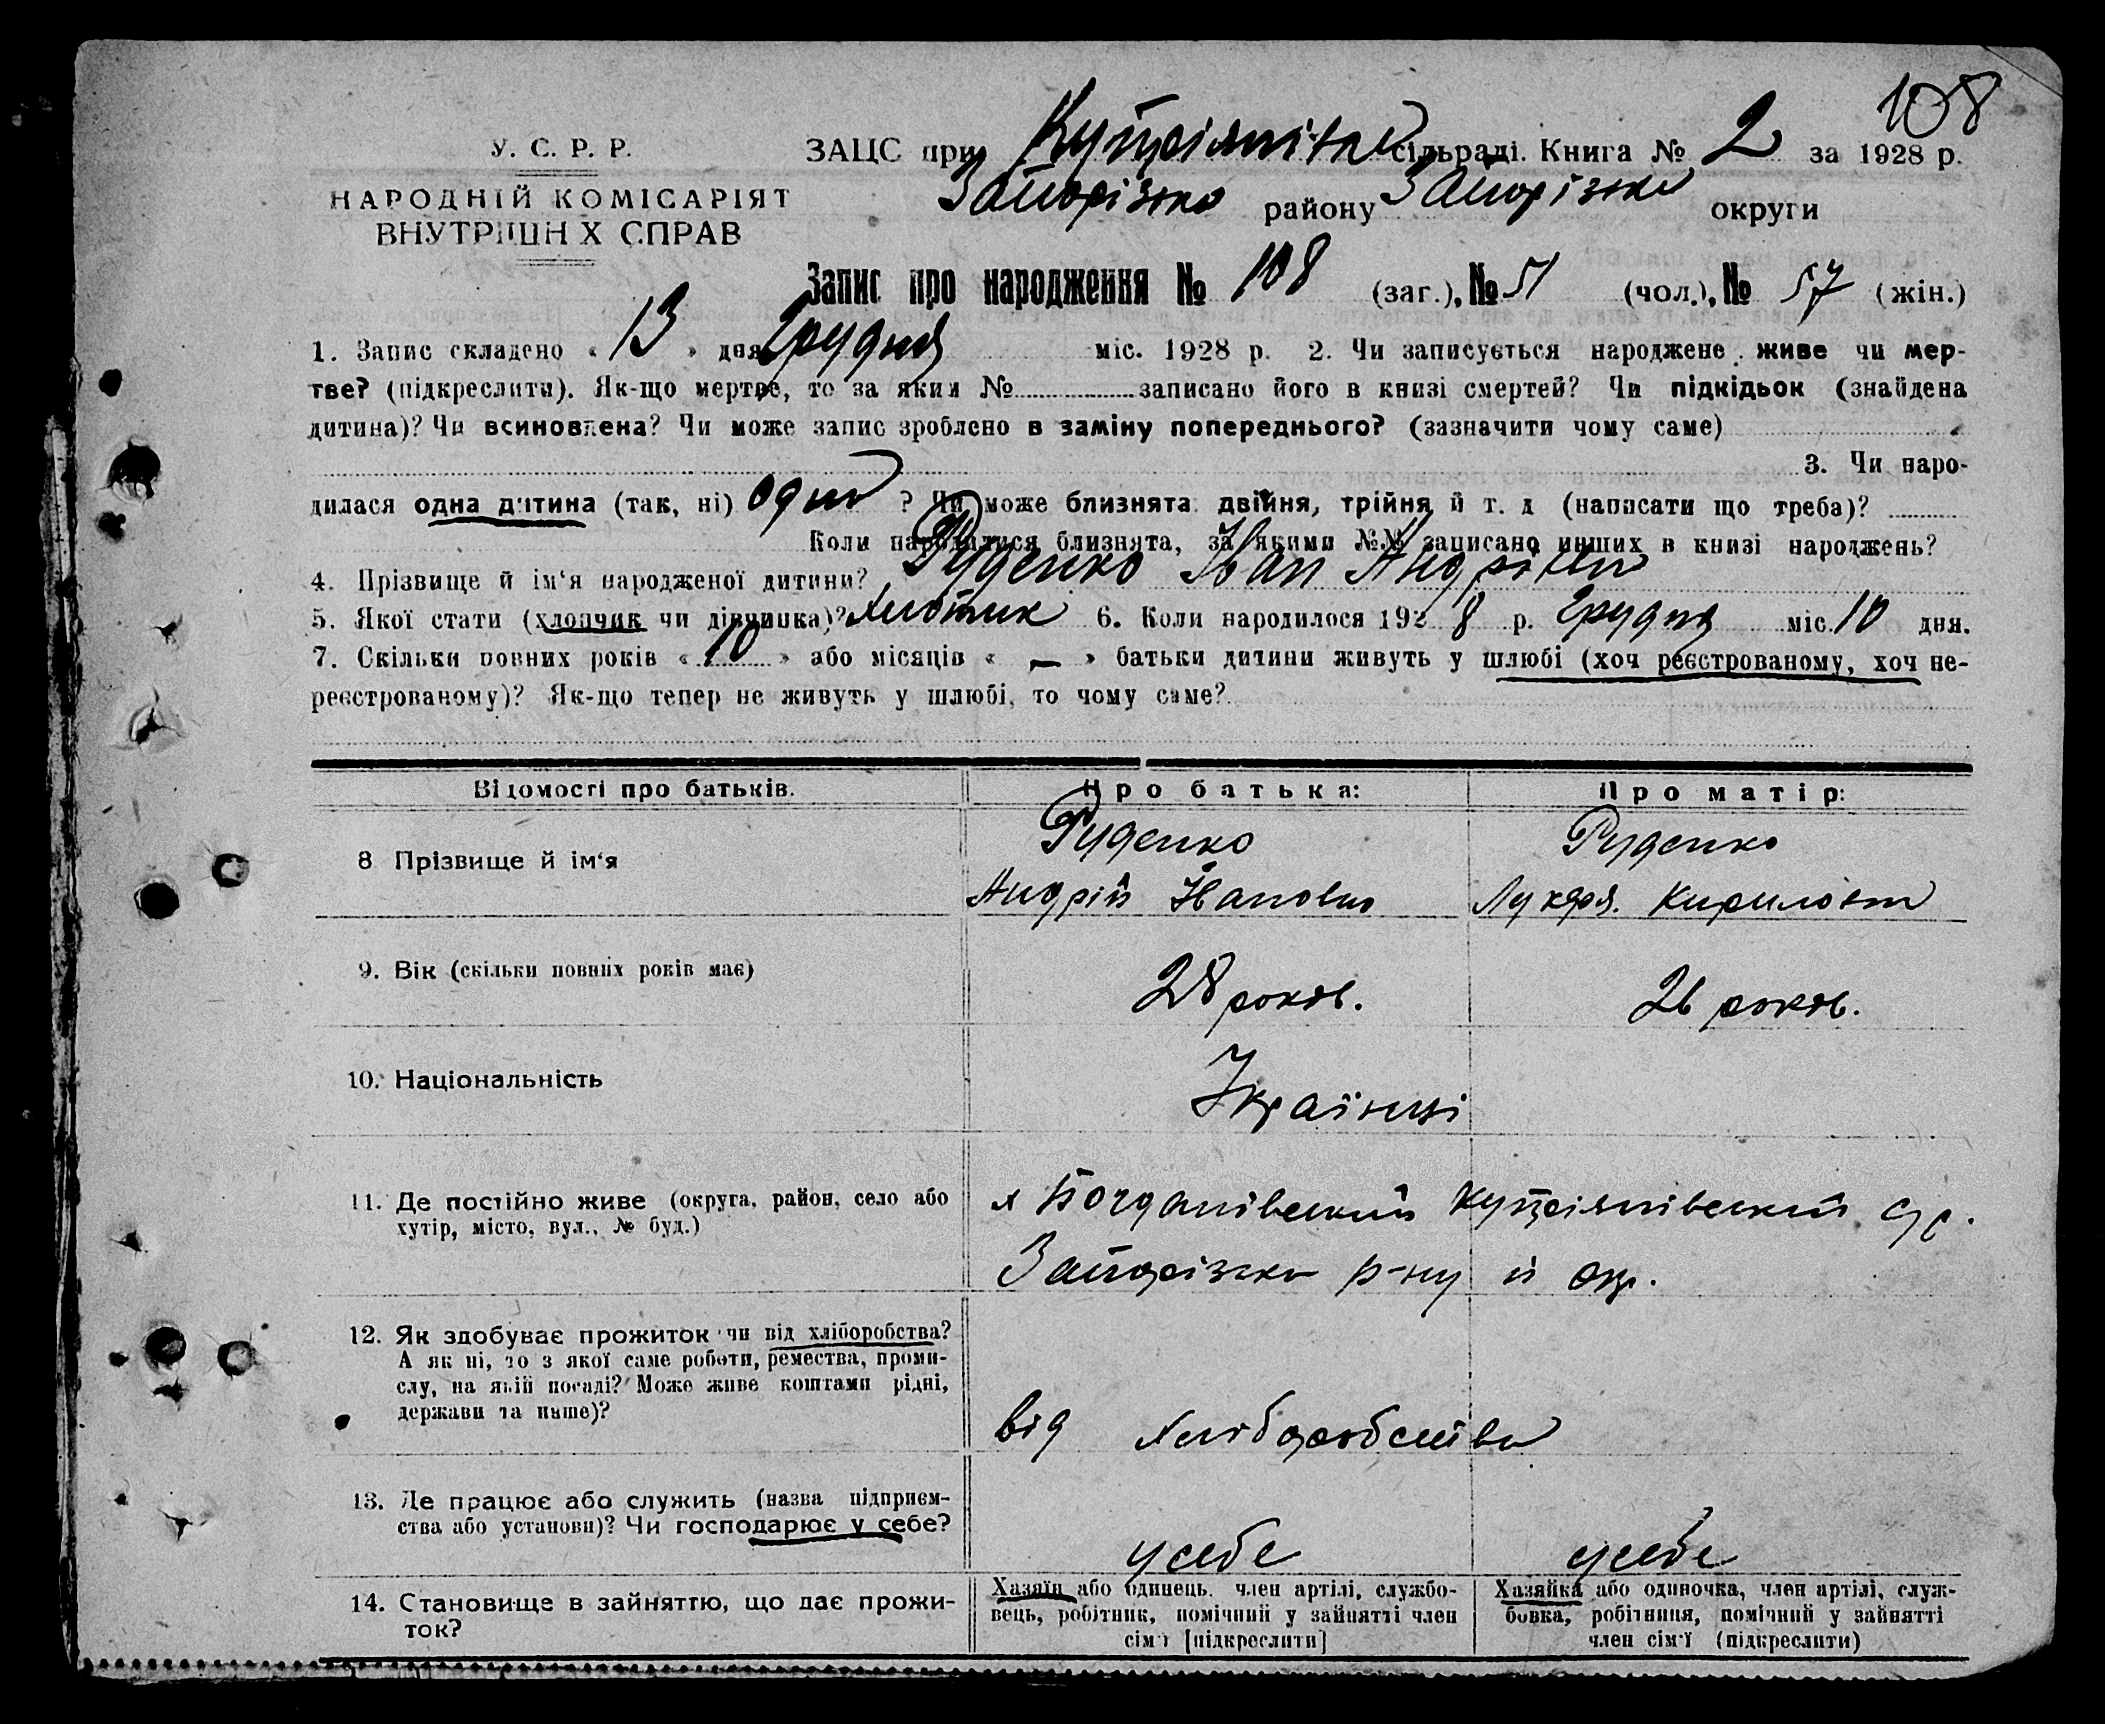 108
У. С. Р. Р.
НАРОДНІЙ КОМІСАРІЯТ
ВНУТРІШН Х СПРАВ
ЗАЦС при Купріянівк сільраді. Книга № 2 за 1928 р.
Запорізько району Запорізько округи
Запис про народження № 108 (заг.), № 51 (чол.), № 57 (жін.)
1. Запис складено « 13 » дня Грудня міс. 1928 р. 2. Чи записується народжене живе чи мер-
тве? (підкреслити). Як-що мертве, то за яким № записано його в книзі смертей? Чи підкідьок (знайдена
дитина)? Чи всиновлена? Чи може запис зроблено в заміну попереднього? (зазначити чому саме)
3. Чи наро-
дилася одна дитина (так, ні) одно ? Чи може близнята: двійня, трійня й т. д (написати що треба)?
Коли народилися близнята, за якими №№ записано инших в книзі народжень?
4. Прізвище й ім‘я народженої дитини? Руденко Іван Андрієв
5. Якої стати (хлопчик чи дівчинка)? Хлопчик 6. Коли народилося 192 8 р. Грудня міс. 10 дня.
7. Скільки повних років « 10 » або місяців « — » батьки дитини живуть у шлюбі (хоч реєстрованому, хоч не-
реєстрованому)? Як-що тепер не живуть у шлюбі, то чому саме?
Відомості про батьків. Про батька: Про матір:
8 Прізвище й ім‘я
Руденко
Андрій Іванович
Руденко
Лукеря. Кирилівна
9. Вік (скільки повних років має)
28 років.
26 років.
10. Національність
Українці
11. Де постійно живе (округа, район, село або
хутір, місто, вул., № буд.)
х Богданівський Купріянівський с/р.
Запорізько р-ну й окр.
12. Як здобуває прожиток чи від хліборобства?
А як ні, то з якої саме роботи, ремества, проми-
слу, на якій посаді? Може живе коштами рідні,
держави та инше)?
від хліборобства
13. Де працює або служить (назва підприєм-
ства або установи)? Чи господарює у себе?
у себе
у себе
14. Становище в зайняттю, що дає прожи-
ток?
Хазяїн або одинець, член артілі, службо-
вець, робітник, помічний у зайнятті член
сім'ї [підкреслити]
Хазяйка або одиночка, член артілі, служ-
бовка, робітниця, помічний у зайнятті
член сім'ї (підкреслити)